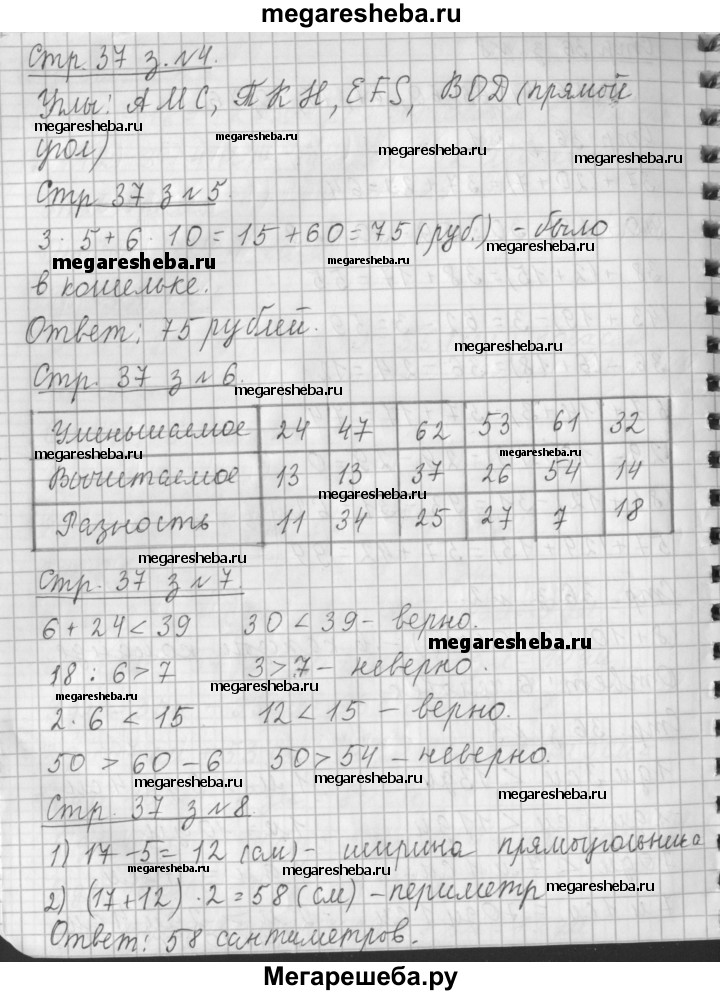 megaresheba.ru
Стр. 37 з. №4.
Углы: АМС, ТКН, EFS, ВОD (прямой
megaresheba.ru megaresheba.ru megaresheba.ru
угол)
Стр. 37 з №5.
megaresheba.ru
3 · 5 + 6 · 10 = 15 + 60 = 75 (руб.) - было
megaresheba.ru megaresheba.ru
в кошельке.
Ответ: 75 рублей.
megaresheba.ru
Стр. 37 з №6.
megaresheba.ru
Уменьшаемое 24 47 62 53 61 32
megaresheba.ru megaresheba.ru
Вычитаемое 13 13 37 26 54 14
megaresheba.ru
Разность 11 34 25 27 7 18
megaresheba.ru
Стр. 37 з №7.
6 + 24 < 39 30 < 39 - верно.
megaresheba.ru
18 : 6 > 7 3 > 7 - неверно.
megaresheba.ru megaresheba.ru
2 · 6 < 15 12 < 15 - верно.
50 > 60 - 6 50 > 54 - неверно.
megaresheba.ru megaresheba.ru
megaresheba.ru
Стр. 37 з №8.
1) 17 - 5 = 12 (см) - ширина прямоугольника
megaresheba.ru megaresheba.ru
2) (17 + 12) · 2 = 58 (см) - периметр
megaresheba.ru
Ответ: 58 сантиметров.
megaresheba.ru megaresheba.ru
Мегарешеба.ру